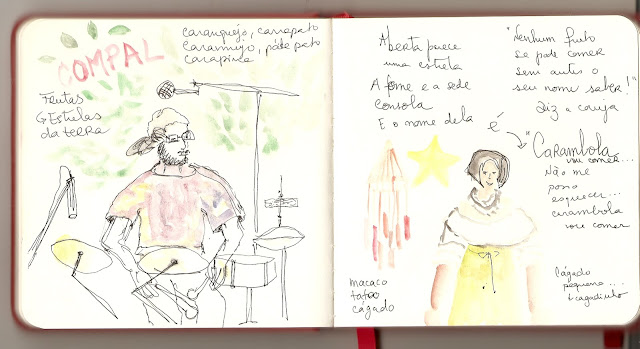 COMPAL
caranguejo, carrapato
caramujo, pato
carapina
Frutas
Estrelas
da terra
Aberta parece
uma estrela
A fome e a sede
consola
E o nome dela
é
"Nenhum fruto
se pode comer
sem antes o
seu nome saber!"
diz a coruja
"Carambola
vou comer...
Não me
posso
esquecer...
carambola
vou comer
macaco
cágado
Cágado
pequeno...
cagadinho